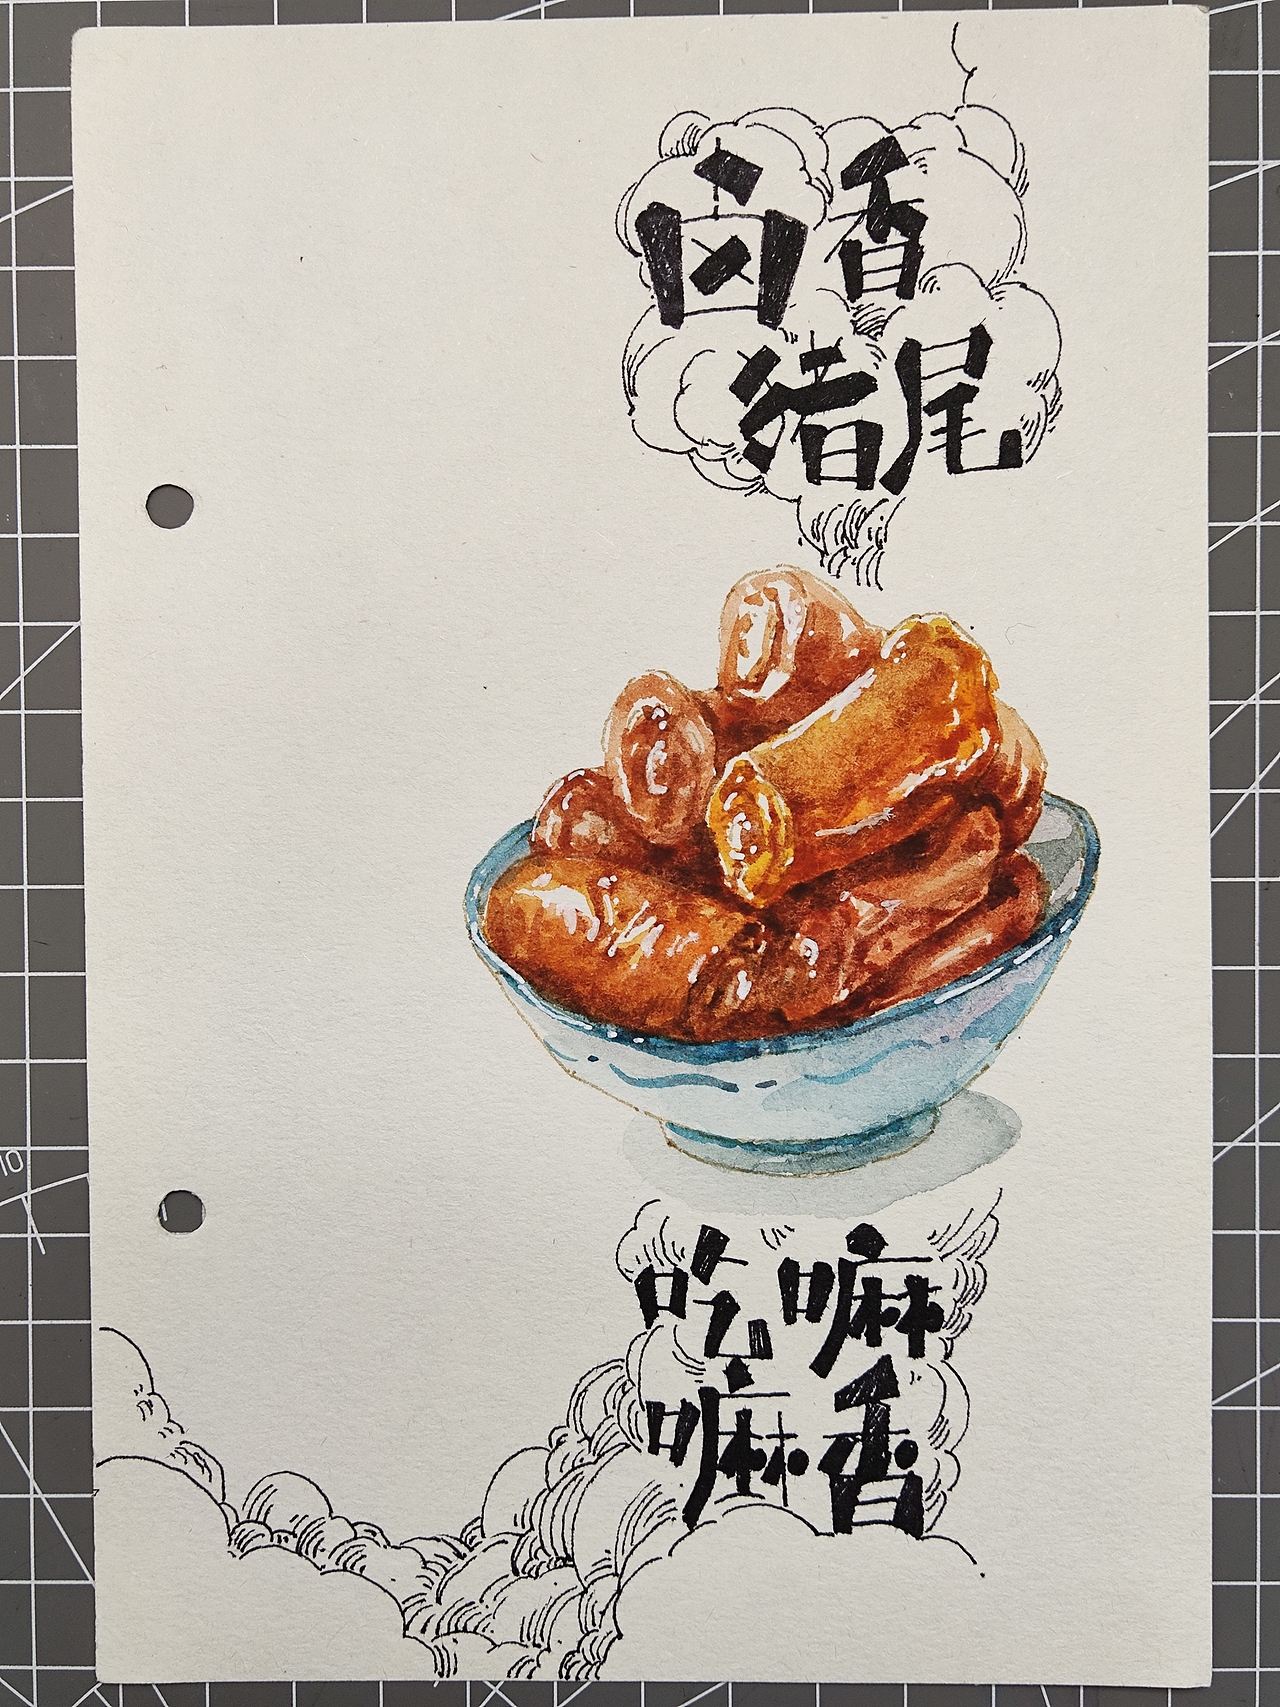 卤香
猪尾
吃嘛
嘛香
10